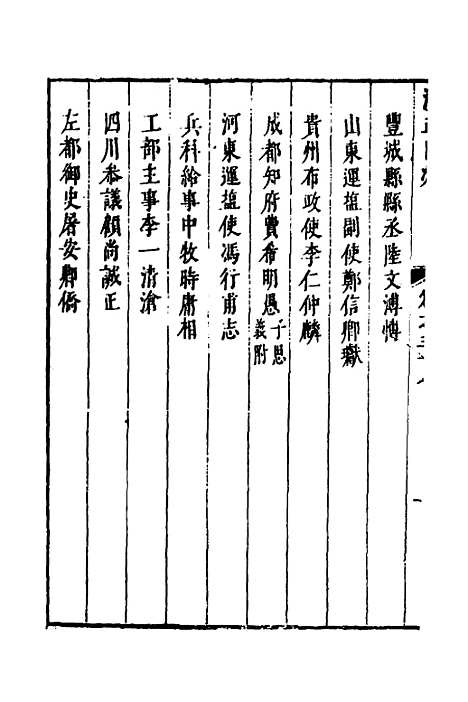 豐城縣縣丞陸文溥愽
山東運鹽副使鄭信卿瓛
貴州布政使李仁仲麟
成都知府費希明愚子思義附
河東運鹽使馮行甫志
兵科給事中牧時庸相
工部主事李一清滄
四川叅議顧尚誠正
左都御史屠安卿僑